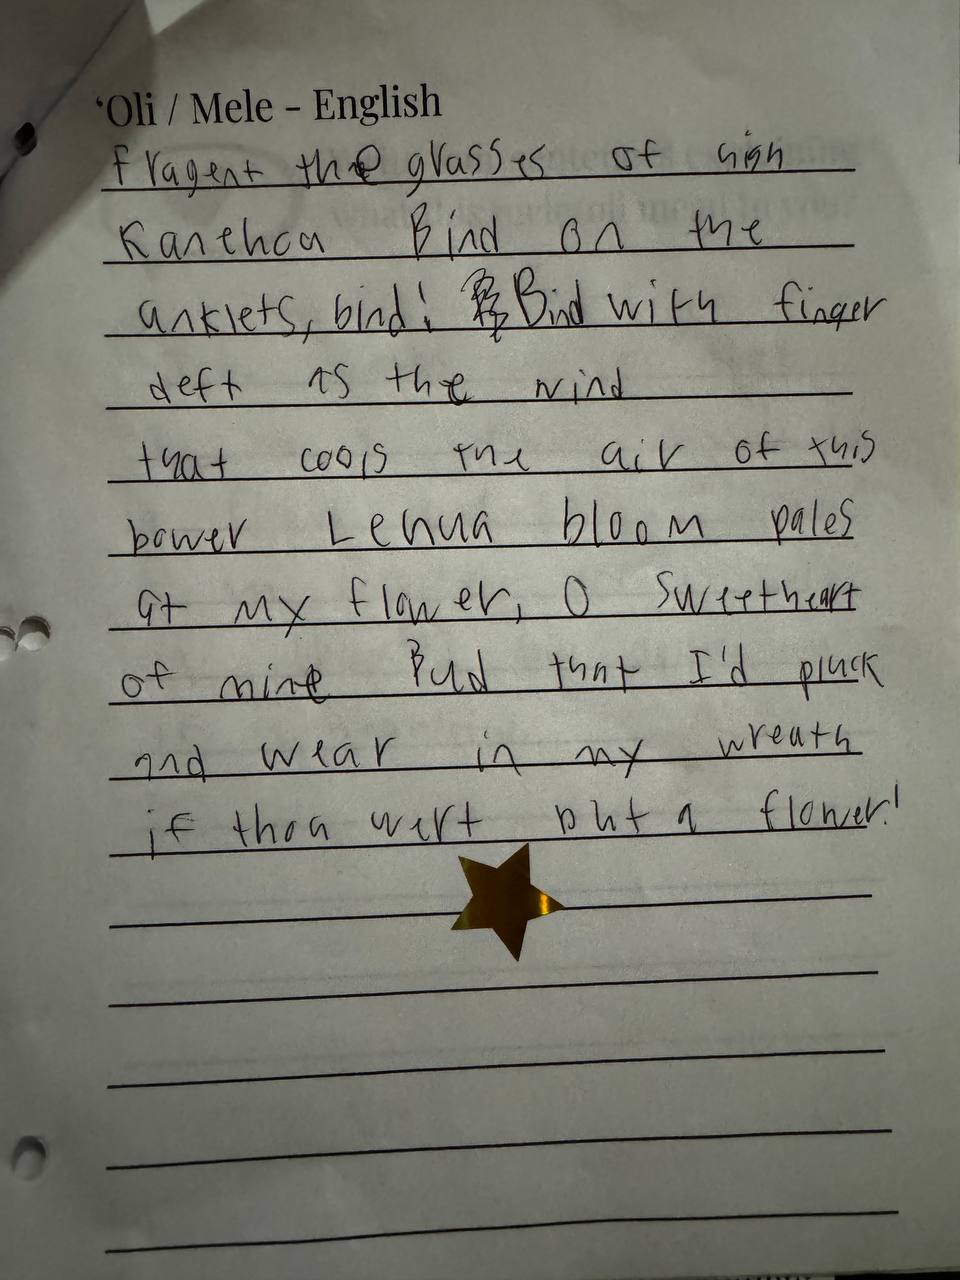 ‘Oli / Mele - English
fragent the grasses of high
Kanehoa Bind on the
anklets, bind! Bind with finger
deft as the wind
that cools the air of this
bower Lehua bloom pales
at my flower, O sweetheart
of mine Bud that I'd pluck
and wear in my wreath
if thou wert but a flower!